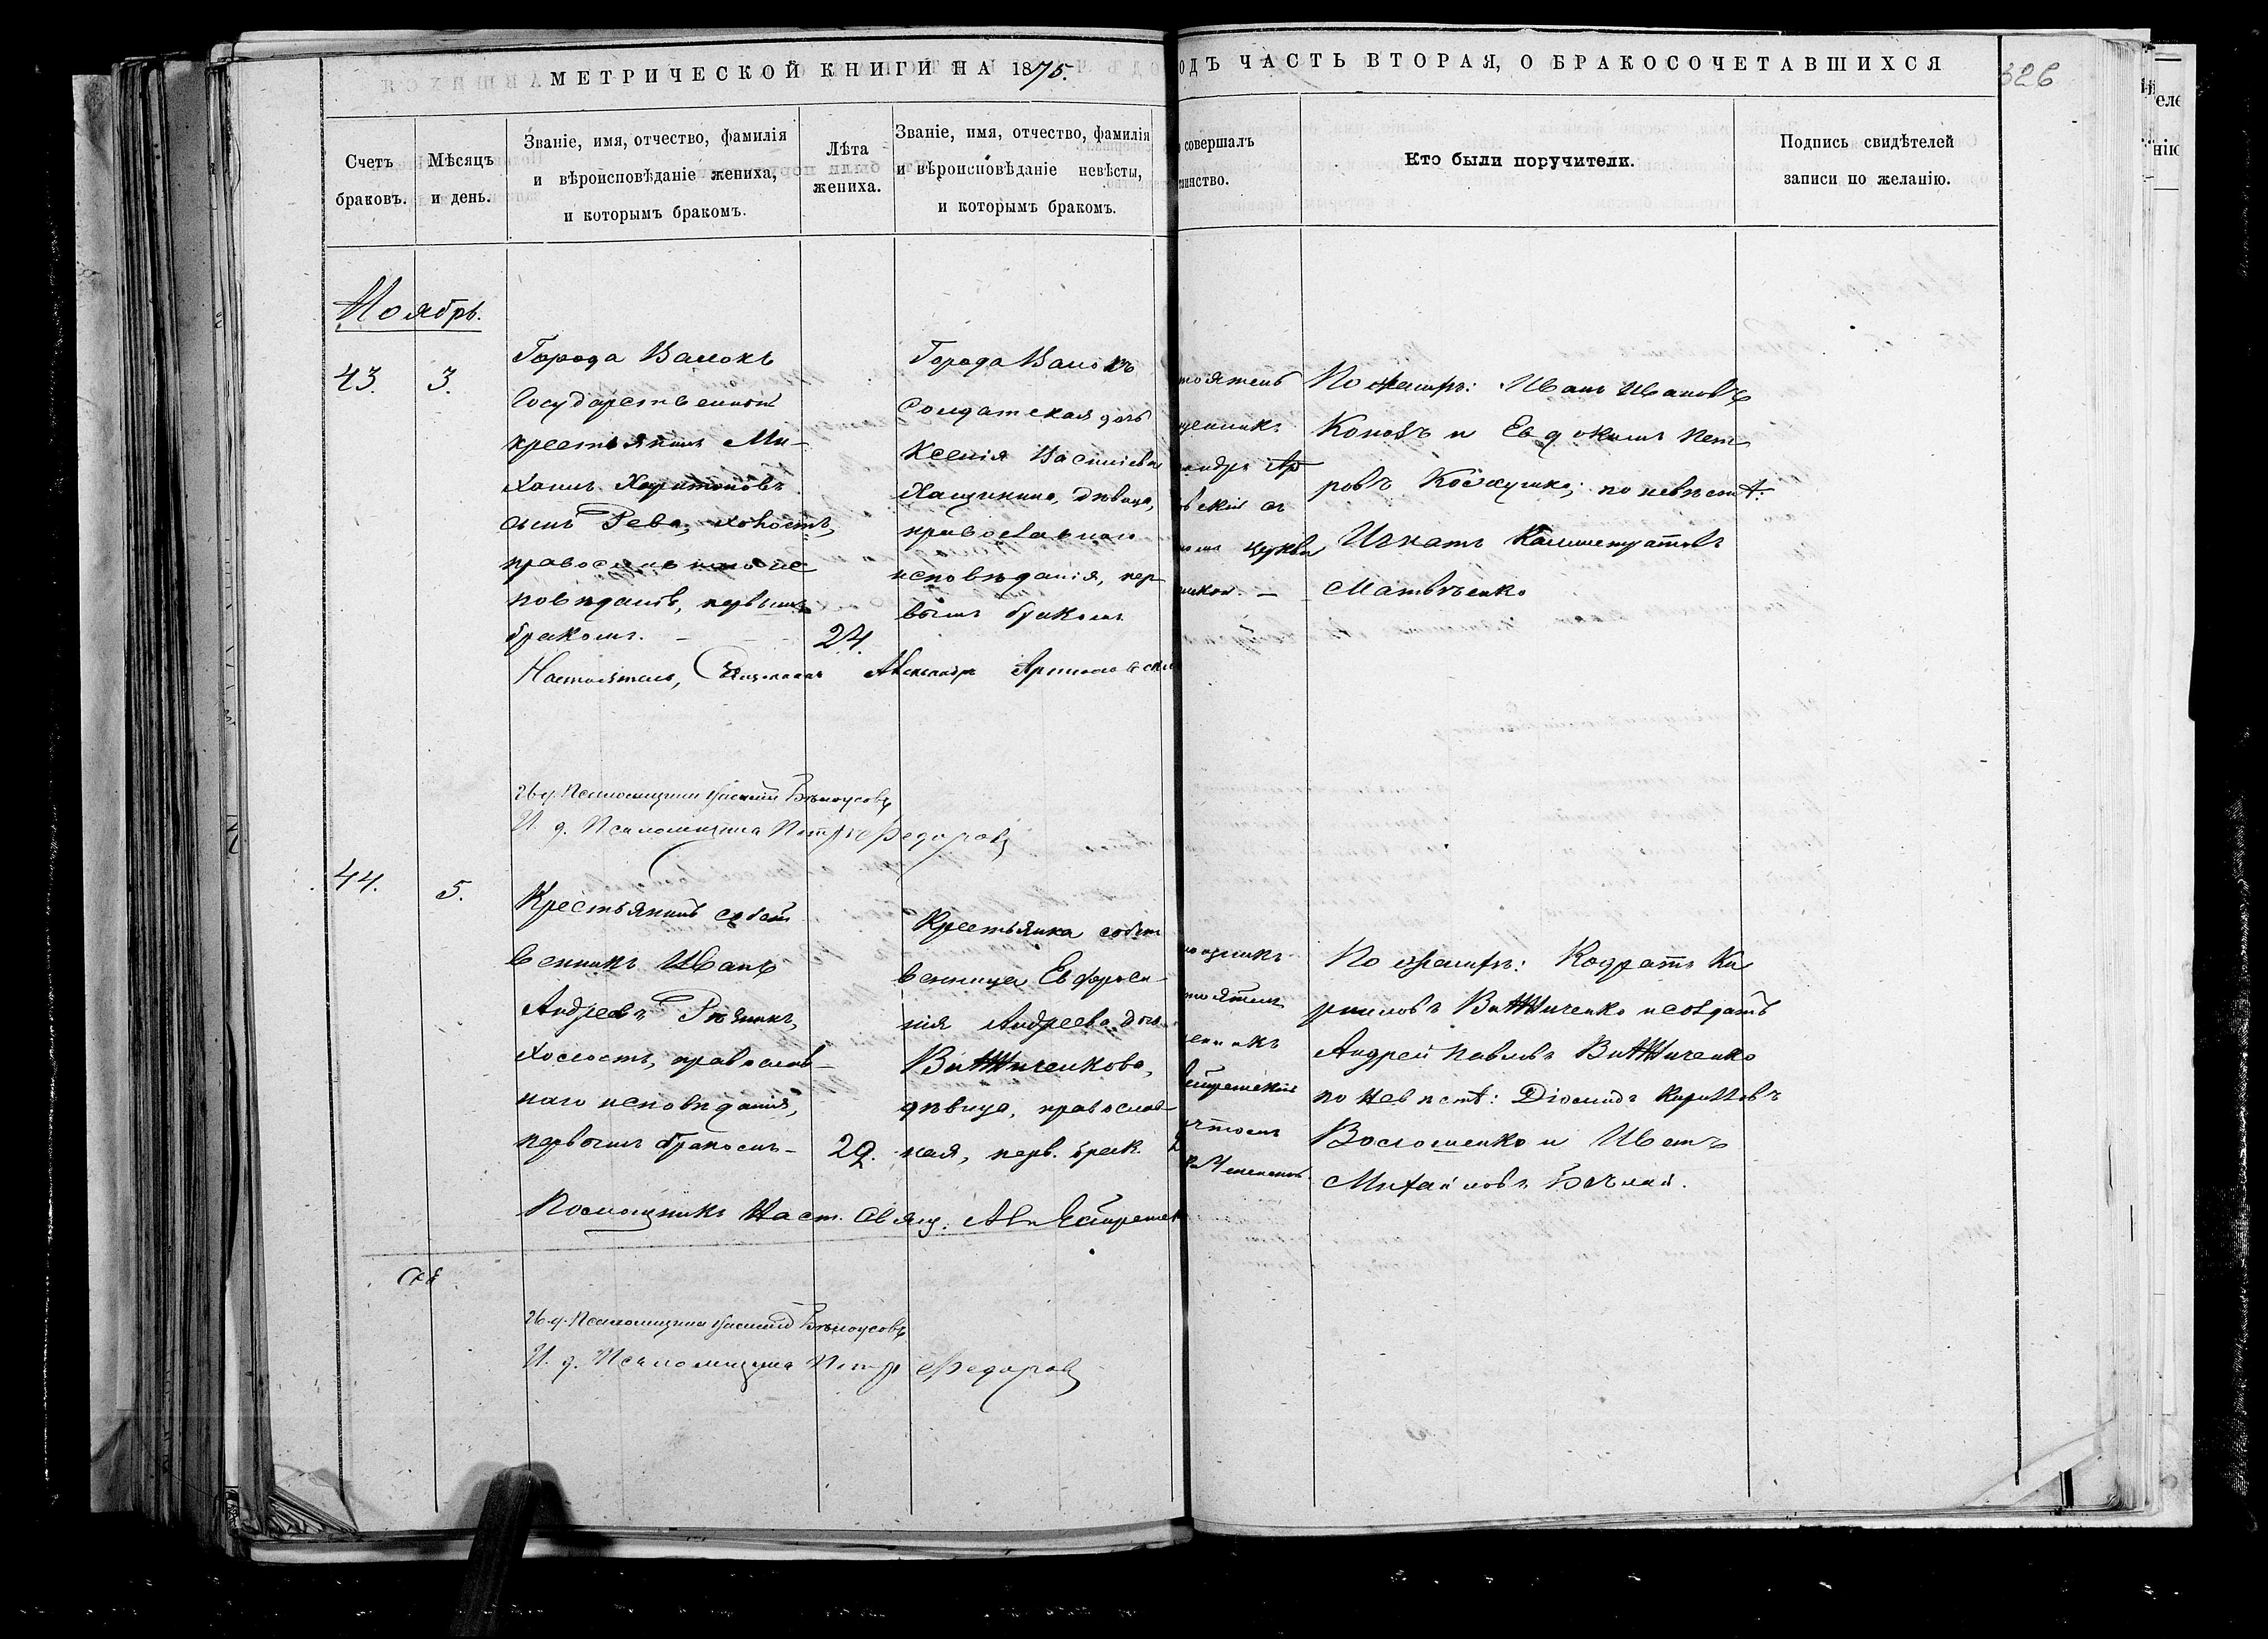 МЕТРИЧЕСКОЙ КНИГИ НА 1875.
ОДЪ ЧАСТЬ ВТОРАЯ, О БРАКОСОЧЕТАВШИХСЯ
326
Счетъ браковъ.
Мѣсяцъ и день.
Званіе, имя, отчество, фамилія
и вѣроисповѣданіе жениха,
и которымъ бракомъ.
Лѣта
жениха.
Званіе, имя, отчество, фамилія
и вѣроисповѣданіе невѣсты,
и которымъ бракомъ.
совершалъ
Кто были поручители.
Подпись свидѣтелей
записи по желанію.
Ноябрь.
43.
3.
Города Валокъ
Государственной
крестьянинъ Ми-
хаилъ Харитоновъ
сынъ Рева, холостъ,
православнаго ис
повѣданія, первымъ
бракомъ.
24.
Города Валокъ
Солдатская дочь
Ксенія Василіева
дѣвица,
православнаго
исповѣданія, пер-
вымъ бракомъ
церкви
По женихѣ: Иванъ Ивановъ
Коповъ и Евдокимъ Пет
ровъ по невѣстѣ:
Игнатъ
Матвѣенко
Настоятель, Священникъ Александръ
И. д. Псаломщика Василій Бѣлоусовъ
И. д. Псаломщика Петръ Федоровъ
44.
5.
Крестьянинъ собст
венникъ Иванъ
Андреевъ
Холостъ, православ-
наго исповѣданія,
первымъ бракомъ-
29.
Крестьянка собст
венница Евфроси-
нія Андреева дочь
Витиченкова,
дѣвица, православ-
ная, перв. брак.
По женихѣ: Кодратъ Ки
риловъ Витиченко и солдатъ
Андрей Павловъ Витиченко
по невѣстѣ: Діомидъ Кириловъ
Волошенко и Иванъ
Михайловъ
Помощникъ Наст. Свящ.
И. д. Псаломщика Василій Бѣлоусовъ
И. д. Псаломщика Петръ Федоровъ